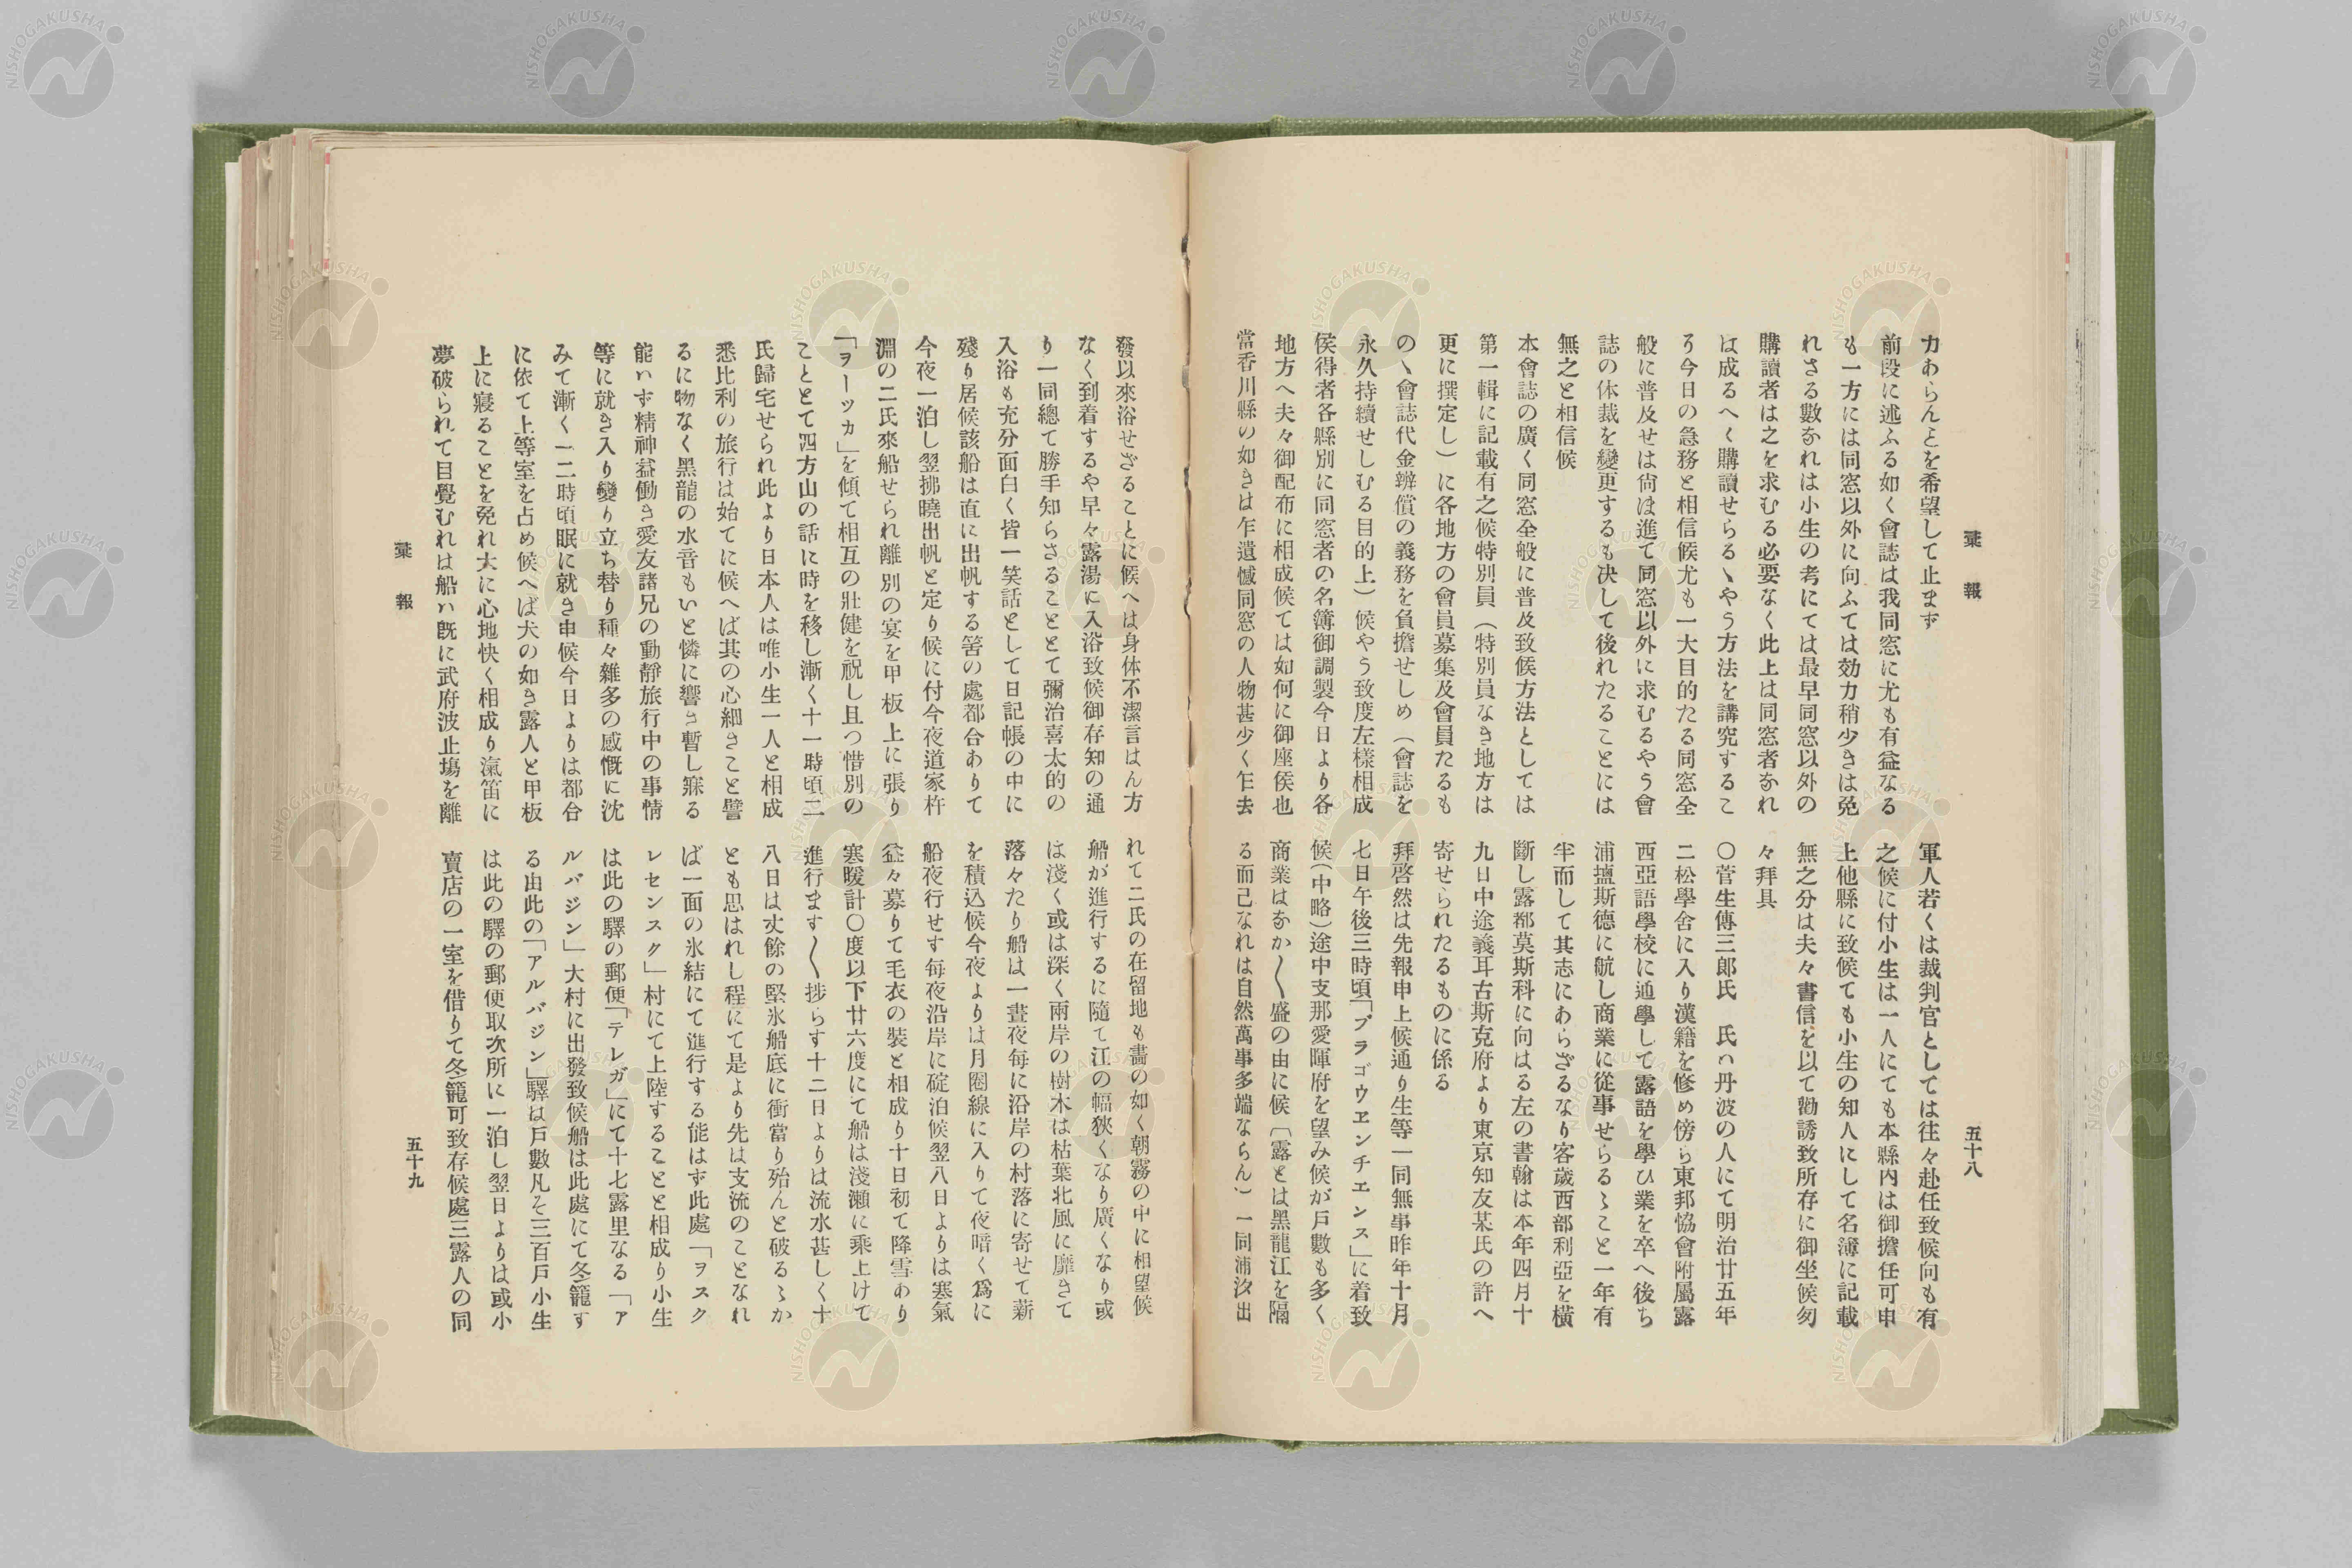 彙報
五十八
力あらんとを希望して止まず
前段に述ふる如く會誌は我同窓に尤も有益なる
も一方には同窓以外に向ふては効力稍少きは免
れさる數なれは小生の考にては最早同窓以外の
購讀者は之を求むる必要なく此上は同窓者なれ
は成るへく購讀せらるヽやう方法を講究するこ
ろ今日の急務と相信候尤も一大目的たる同窓全
般に普及せは尙ほ進て同窓以外に求むるやう會
誌の体裁を變更するも决して後れたることには
無之と相信候
本會誌の廣く同窓全般に普及致候方法としては
第一輯に記載有之候特別員（特別員なき地方は
更に撰定し）に各地方の會員募集及會員たるも
のヽ會誌代金辨償の義務を負擔せしめ（會誌を
永久持續せしむる目的上）候やう致度左樣相成
侯得者各縣別に同窓者の名簿御調製今日より各
地方へ夫々御配布に相成候ては如何に御座侯也
當香川縣の如きは乍遺憾同窓の人物甚少く乍去
軍人若くは裁判官としては往々赴任致候向も有
之候に付小生は一人にても本縣內は御擔任可申
上他縣に致候ても小生の知人にして名簿に記載
無之分は夫々書信を以て勸誘致所存に御坐候匆
々拜具
〇菅生傳三郎氏　氏ハ丹波の人にて明治廿五年
二松學舍に入り漢籍を修め傍ら東邦協會附屬露
西亞語學校に通學して露語を學ひ業を卒へ後ち
浦塩斯德に航し商業に從事せらるゝこと一年有
半而して其志にあらざるなり客歲西部利亞を橫
斷し露都莫斯科に向はる左の書翰は本年四月十
九日中途義耳古斯克府より東京知友某氏の許へ
寄せられたるものに係る
拜啓然は先報申上候通り生等一同無事昨年十月
七日午後三時頃「ブラゴウヱンチエンス」に着致
候（中略）途中支那愛暉府を望み候が戶數も多く
商業はなか〱盛の由に候〔露とは黑龍江を隔
る而己なれは自然萬事多端ならん〕一同浦汐出
發以來浴せざることに候へは身体不潔言はん方
なく到着するや早々露湯に入浴致候御存知の通
り一同總て勝手知らさることとて彌治喜太的の
入浴も充分面白く皆一笑話として日記帳の中に
殘り居候該船は直に出帆する筈の處都合ありて
今夜一泊し翌拂曉出帆と定り候に付今夜道家杵
淵の二氏來船せられ離別の宴を甲板上に張り
「ヲーツカ」を傾て相互の壯健を祝し且つ惜別の
こととて四方山の話に時を移し漸く十一時頃二
氏歸宅せられ此より日本人は唯小生一人と相成
悉比利の旅行は始てに候へば其の心細さこと譬
るに物なく黑龍の水音もいと憐に響き暫し寐る
能ハず精神益働き愛友諸兄の動靜旅行中の事情
等に就き入り變り立ち替り種々雜多の感慨に沈
みて漸く一二時頃眠に就き申候今日よりは都合
に依て上等室を占め候へば犬の如き露人と甲板
上に寢ることを免れ大に心地快く相成り滊笛に
夢破られて目覺むれは船ハ既に武府波止塲を離
れて二氏の在留地も畵の如く朝霧の中に相望候
船が進行するに隨て江の幅狹くなり廣くなり或
は淺く或は深く兩岸の樹木は枯葉北風に靡きて
落々たり船は一晝夜每に沿岸の村落に寄せて薪
を積込候今夜よりは月圈線に入りて夜暗く爲に
船夜行せす每夜沿岸に碇泊候翌八日よりは寒氣
益々募りて毛衣の裝と相成り十日初て降雪あり
寒暖計〇度以下廿六度にて船は淺瀨に乘上けて
進行ます〱捗らす十二日よりは流水甚しく十
八日は丈餘の堅氷船底に衝當り殆んと破るゝか
とも思はれし程にて是より先は支流のことなれ
ば一面の氷結にて進行する能はず此處「ヲスク
レセンスク」村にて上陸することと相成り小生
は此の驛の郵便「テレガ」にて十七露里なる「ア
ルバジン」大村に出發致候船は此處にて冬籠す
る由此の「アルバジン」驛は戶數凡そ三百戶小生
は此の驛の郵便取次所に一泊し翌日よりは或小
賣店の一室を借りて冬籠可致存候處三露人の同
彙報
五十九